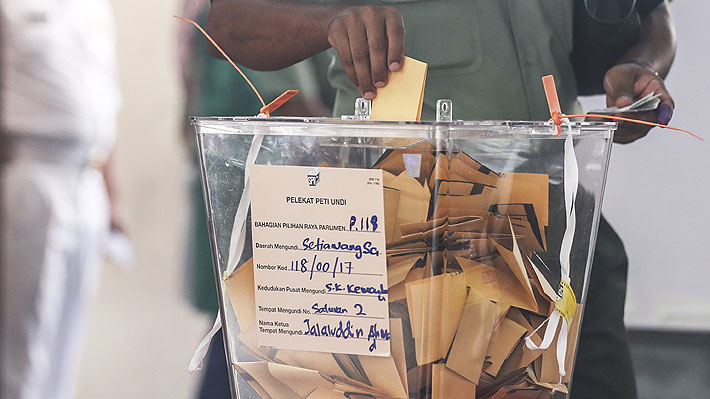 SPR 716
PELEKAT PETI UNDI
BAHAGIAN PILIHAN RAYA PARLIMEN P.118
Daerah Mengundi Setiawangsa
Nombor Kod 118/00/17
Kedudukan Pusat Mengundi S.K.
Tempat Mengundi No. Saluran 2
Nama Ketua
Tempat Mengundi Jalaluddin